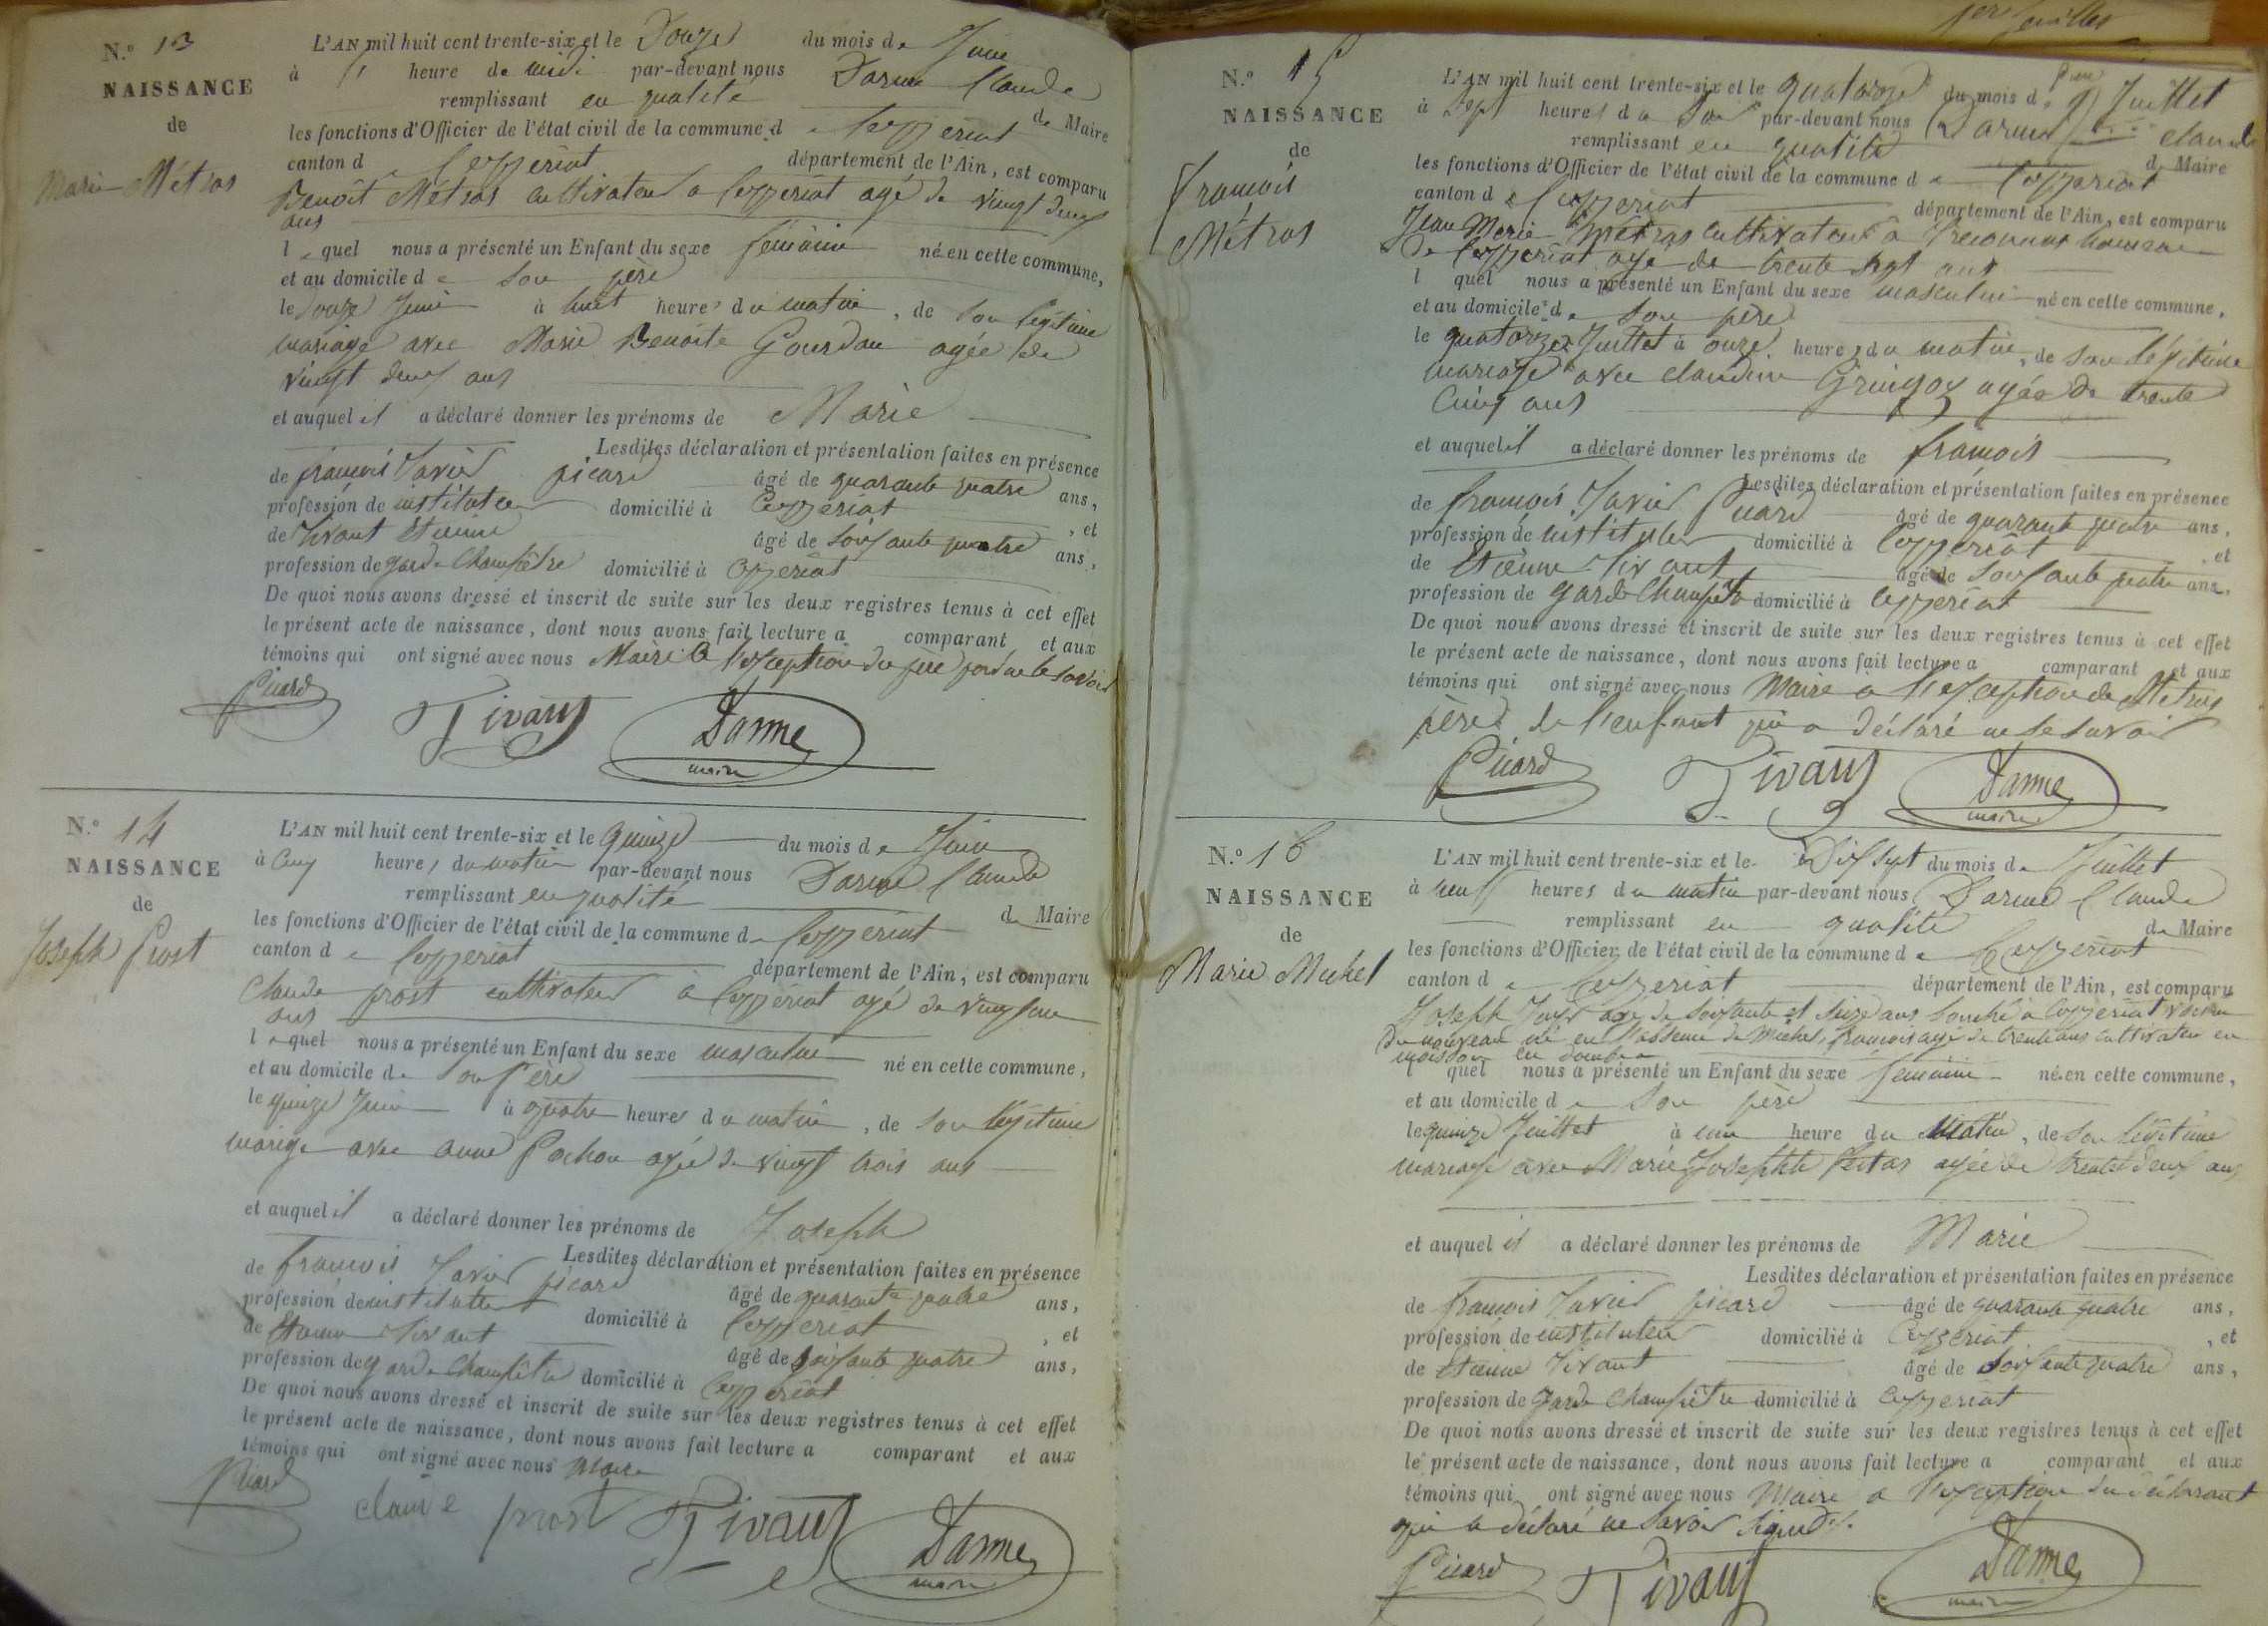 1ers feuillet
N.º 13
NAISSANCE
de
Marie Métras
L'AN mil huit cent trente-six et le Douze du mois de Juin
à heure de midi par-devant nous Darme Claude
remplissant en qualité de Maire
les fonctions d'Officier de l'état civil de la commune de Ceyzeriat
canton de Ceyzeriat département de l'Ain, est comparu
Benoît Métras cultivateur a Ceyzeriat agé de vingt deux
ans
lequel nous a présenté un Enfant du sexe féminin né en cette commune,
et au domicile de son père
le Douze Juin à huit heures du matin, de son légitime
mariage avec Marie Benoite Gourdan agée de
vingt deux ans
et auquel il a déclaré donner les prénoms de Marie
Lesdites déclaration et présentation faites en présence
de françois Xavier picard âgé de quarante quatre ans,
profession de instituteur domicilié à Ceyzeriat, et
de Tivant Etienne âgé de soixante quatre ans,
profession de garde Champêtre domicilié à Ceyzeriat
De quoi nous avons dressé et inscrit de suite sur les deux registres tenus à cet effet
le présent acte de naissance, dont nous avons fait lecture a comparant et aux
témoins qui ont signé avec nous Maire à l'exception du père pour ne le savoir
Picard Tivant Darme
maire
N.º 14
NAISSANCE
de
Joseph Prost
L'AN mil huit cent trente-six et le quinze du mois de Juin
à cinq heures du matin par-devant nous Darme Claude
remplissant en qualité de Maire
les fonctions d'Officier de l'état civil de la commune de Ceyzeriat
canton de Ceyzeriat département de l'Ain, est comparu
Claude prost cultivateur à Ceyzériat agé de
ans
lequel nous a présenté un Enfant du sexe masculin né en cette commune,
et au domicile de son père
le quinze Juin à quatre heures du matin, de son légitime
mariage avec anne Pochon agée de vingt trois ans
et auquel il a déclaré donner les prénoms de Joseph
Lesdites déclaration et présentation faites en présence
de françois Xavier picard âgé de quarante quatre ans,
profession de instituteur domicilié à Ceyzeriat, et
de Etienne Tivant âgé de soixante quatre ans,
profession de garde Champêtre domicilié à Ceyzeriat
De quoi nous avons dressé et inscrit de suite sur les deux registres tenus à cet effet
le présent acte de naissance, dont nous avons fait lecture a comparant et aux
témoins qui ont signé avec nous Maire
Picard claude prost Tivant Darme
maire
N.º 15
NAISSANCE
de
François
Métras
L'AN mil huit cent trente-six et le quatorze du mois de Juillet
à sept heures du soir par-devant nous Darme Claude
remplissant en qualité de Maire
les fonctions d'Officier de l'état civil de la commune de Ceyzeriat
canton de Ceyzeriat département de l'Ain, est comparu
Jean Marie Métras cultivateur à hameau
de Ceyzeriat agé de trente sept ans
l quel nous a présenté un Enfant du sexe masculin né en cette commune,
et au domicile de son père
le quatorze Juillet à onze heures du matin, de son légitime
mariage avec claudine Gringoz agée de trente
cinq ans
et auquel il a déclaré donner les prénoms de françois
Lesdites déclaration et présentation faites en présence
de françois Xavier Picard âgé de quarante quatre ans,
profession de instituteur domicilié à Ceyzeriat, et
de Etienne Tivant âgé de soixante quatre ans,
profession de garde Champêtre domicilié à Ceyzeriat
De quoi nous avons dressé et inscrit de suite sur les deux registres tenus à cet effet
le présent acte de naissance, dont nous avons fait lecture a comparant et aux
témoins qui ont signé avec nous Maire a l'exception de Métras
père de l'enfant qui a déclaré ne le savoir
Picard Tivant Darme
maire
N.º 16
NAISSANCE
de
Marie Michel
L'AN mil huit cent trente-six et le Dix sept du mois de Juillet
à neuf heures du matin par-devant nous Darme Claude
remplissant en qualité de Maire
les fonctions d'Officier de l'état civil de la commune de Ceyzeriat
canton de Ceyzeriat département de l'Ain, est comparu
Joseph agé de soixante et seize ans à Ceyzeriat
du nouveau né en l'absence de Michel françois agé de trente ans cultivateur en
moisson en dombe
l quel nous a présenté un Enfant du sexe féminin né en cette commune,
et au domicile de son père
le quinze Juillet à une heure du Matin, de son légitime
mariage avec Marie Josephte agée de trente deux ans
et auquel il a déclaré donner les prénoms de Marie
Lesdites déclaration et présentation faites en présence
de françois Xavier picard âgé de quarante quatre ans,
profession de instituteur domicilié à Ceyzeriat, et
de Etienne Tivant âgé de soixante quatre ans,
profession de garde Champêtre domicilié à Ceyzeriat
De quoi nous avons dressé et inscrit de suite sur les deux registres tenus à cet effet
le présent acte de naissance, dont nous avons fait lecture a comparant et aux
témoins qui ont signé avec nous Maire a l'exception du déclarant
qui a déclaré ne savoir signer
Picard Tivant Darme
maire